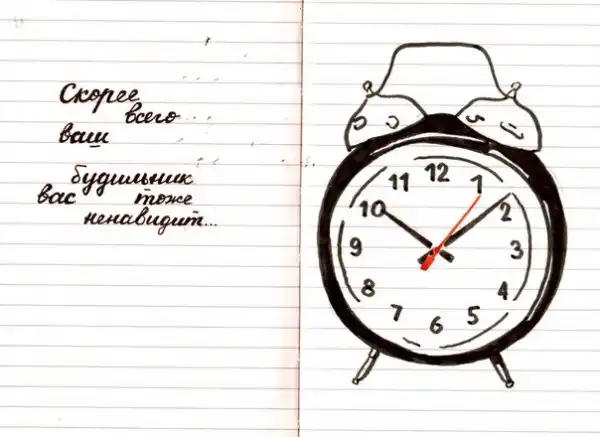 Скорее
всего
ваш
будильник
вас тоже
ненавидит...
12
11
1
10
2
9
3
8
4
7
5
6